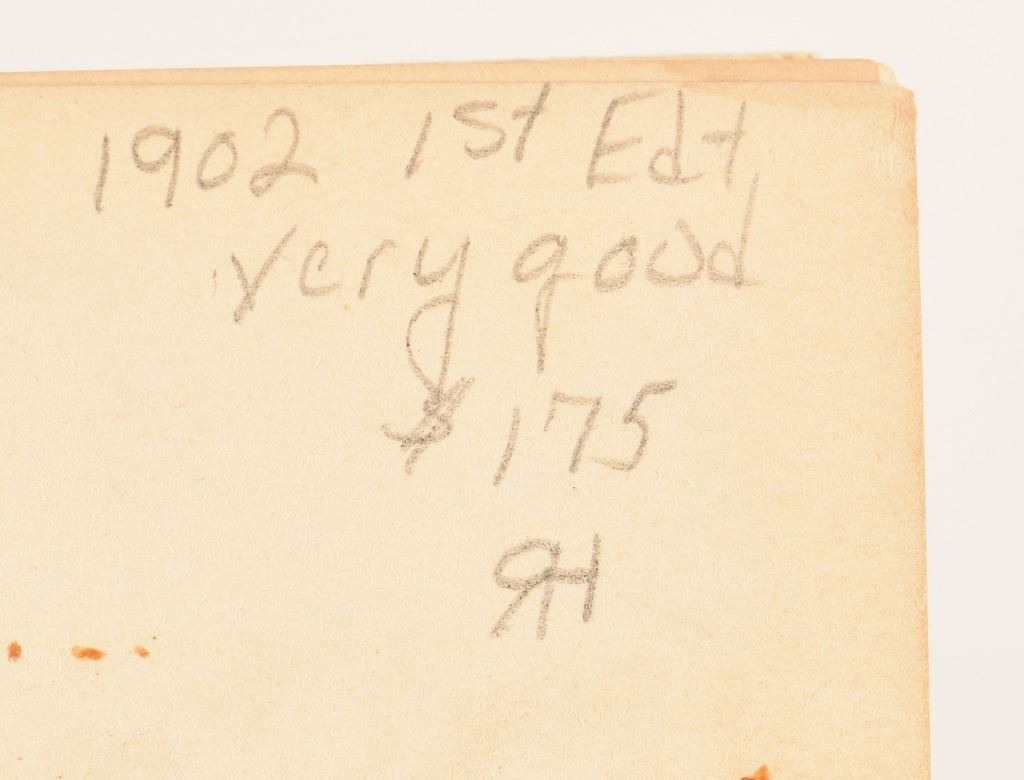 1902 1st Edt,
very good
$175
RH